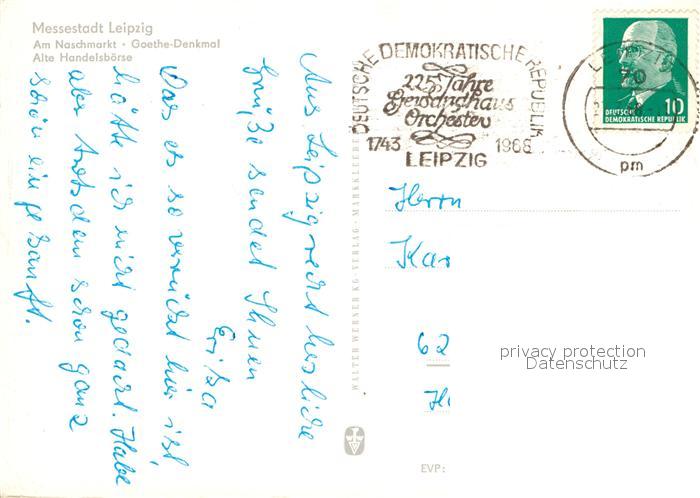 Messestadt Leipzig
Am Naschmarkt · Goethe-Denkmal
Alte Handelsbörse
Aus Leipzig recht herzliche
Grüße sendet Ihnen
Erika
Das es so verrückt hier ist,
hätte ich nicht gedacht. Habe
aber trotzdem schon ganz
schön eingekauft.
WALTER WERNER KG · VERLAG · MARKKLEEBE
DEUTSCHE DEMOKRATISCHE REPUBLIK
225 Jahre
Gewandhaus
Orchester
1743 1968
LEIPZIG
LEIPZIG
70
pm
DEUTSCHE
DEMOKRATISCHE REPUBLIK
10
Herrn
Kar
62
privacy protection
Datenschutz
EVP: